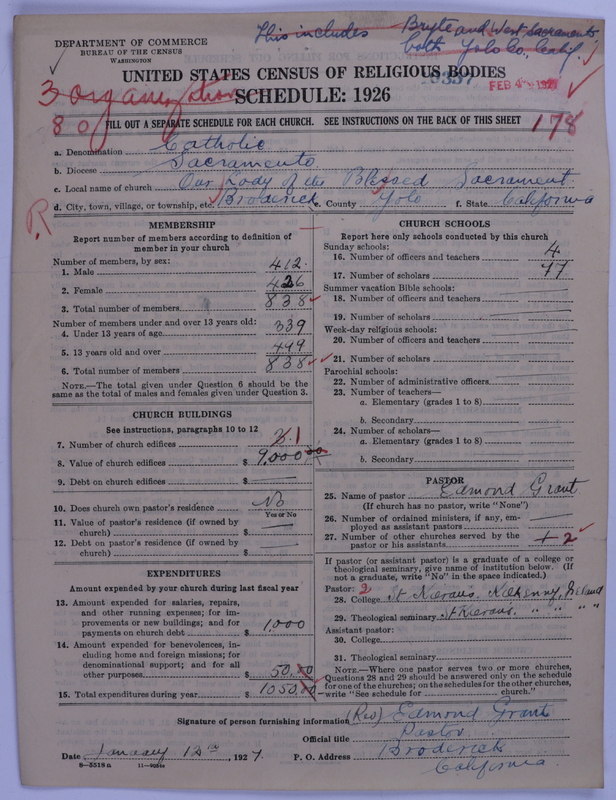 This includes Bryte and West Sacramento
both Yolo Co, Calif.
DEPARTMENT OF COMMERCE
BUREAU OF THE CENSUS
WASHINGTON
UNITED STATES CENSUS OF RELIGIOUS BODIES
FEB 4 1927
3 organizations
SCHEDULE: 1926
80
FILL OUT A SEPARATE SCHEDULE FOR EACH CHURCH. SEE INSTRUCTIONS ON THE BACK OF THIS SHEET
178
a. Denomination Catholic
b. Diocese Sacramento
c. Local name of church Our Lady of the Blessed Sacrament
d. City, town, village, or township, etc. Broderick e. County Yolo f. State California
R
MEMBERSHIP
Report number of members according to definition of
member in your church
Number of members, by sex:
1. Male 412
2. Female 426
3. Total number of members 838
Number of members under and over 13 years old:
4. Under 13 years of age 339
5. 13 years old and over 499
6. Total number of members 838
NOTE.—The total given under Question 6 should be
same as the total of males and females given under Question 3.
CHURCH BUILDINGS
See instructions, paragraphs 10 to 12
7. Number of church edifices 1
8. Value of church edifices $ 9,000 00
9. Debt on church edifices $
10. Does church own pastor's residence No
Yes or No
11. Value of pastor's residence (if owned by
church) $
12. Debt on pastor's residence (if owned by
church) $
EXPENDITURES
Amount expended by your church during last fiscal year
13. Amount expended for salaries, repairs,
and other running expenses; for im-
provements or new buildings; and for
payments on church debt $ 1,000
14. Amount expended for benevolences, in-
cluding home and foreign missions; for
denominational support; and for all
other purposes $ 50.00
15. Total expenditures during year $ 1050.00
CHURCH SCHOOLS
Report here only schools conducted by this church
Sunday schools:
16. Number of officers and teachers 4
17. Number of scholars 47
Summer vacation Bible schools:
18. Number of officers and teachers
19. Number of scholars
Week-day religious schools:
20. Number of officers and teachers
21. Number of scholars
Parochial schools:
22. Number of administrative officers
23. Number of teachers—
a. Elementary (grades 1 to 8)
b. Secondary
24. Number of scholars—
a. Elementary (grades 1 to 8)
b. Secondary
PASTOR
25. Name of pastor Edmond Grant
(If church has no pastor, write "None")
26. Number of ordained ministers, if any, em-
ployed as assistant pastors
27. Number of other churches served by the
pastor or his assistants 2
If pastor (or assistant pastor) is a graduate of a college or
theological seminary, give name of institution below. (If
not a graduate, write "No" in the space indicated.)
Pastor: 2
28. College St Kierans, Kilkenny, Ireland
29. Theological seminary St Kierans. " " " "
Assistant pastor:
30. College
31. Theological seminary
NOTE.—Where one pastor serves two or more churches,
Questions 28 and 29 should be answered only on the schedule
for one of the churches; on the schedules for the other churches,
write "See schedule for church."
Signature of person furnishing information (Rev) Edmond Grant
Official title Pastor
Date January 12th, 1927. P. O. Address Broderick
California.
8—5518a